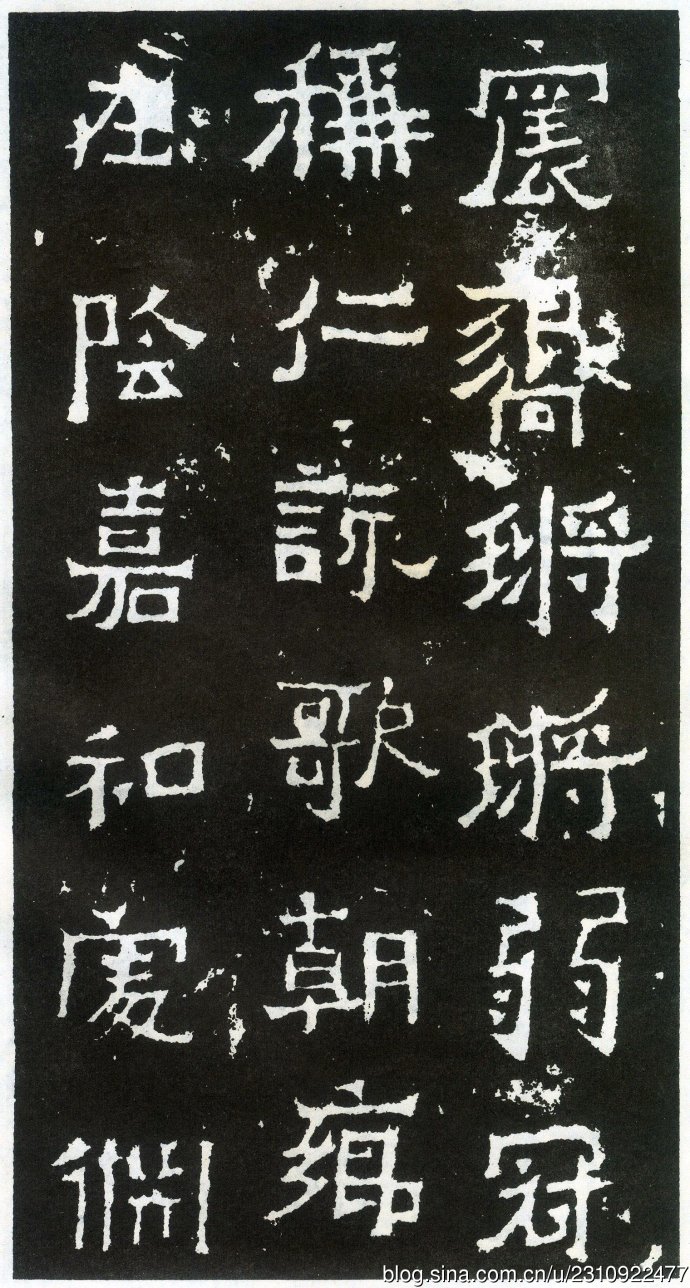 震響鏘鏘弱冠
稱仁詠歌朝鄉
在陰嘉和處淵
blog.sina.com.cn/u/2310922477